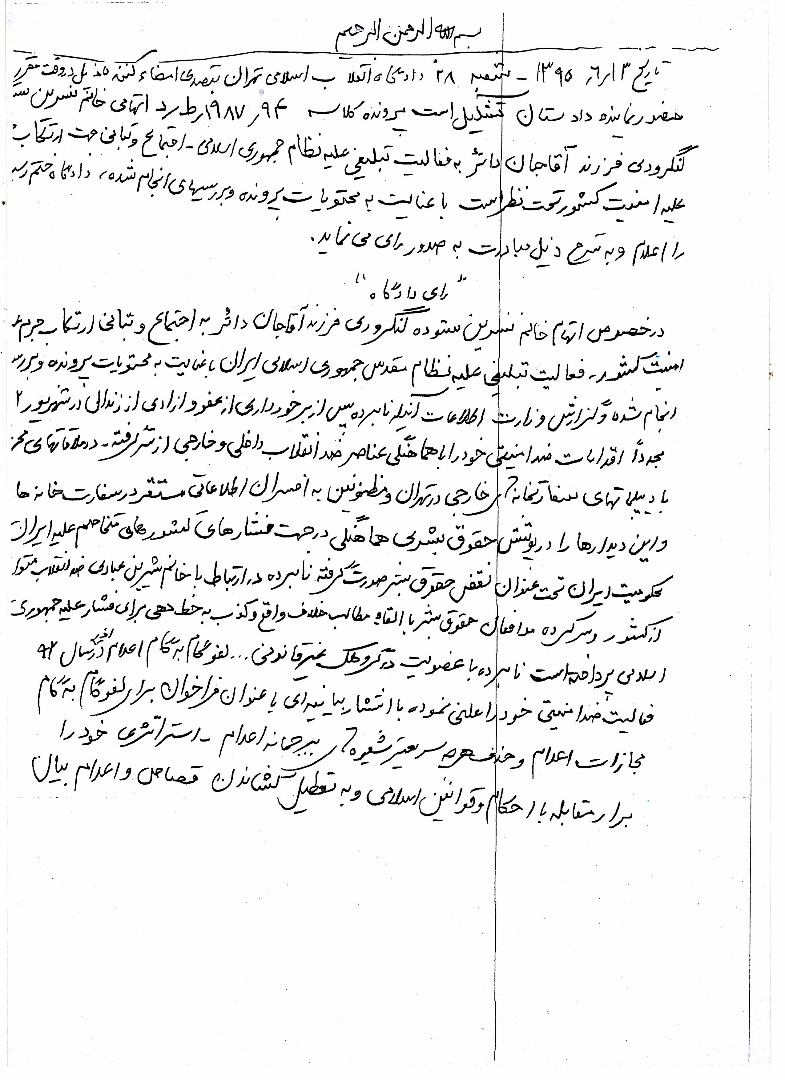 بسم الله الرحمن الرحیم
تاریخ ۱۳۹۵/۶/۱۳ - شعبه ۲۸ دادگاه انقلاب اسلامی تهران بتصدی امضاء کننده ذیل در وقت مقرر
حضور نماینده دادستان تشکیل است پرونده کلاسه ۹۴/۱۹۸۷/ط رد اتهامی خانم نسرین
لنگرودی فرزند آقاجان دائر به فعالیت تبلیغی علیه نظام جمهوری اسلامی - اجتماع و تبانی جهت ارتکاب
علیه امنیت کشور تحت نظر است با عنایت به محتویات پرونده و بررسیهای انجام شده، دادگاه ختم
را اعلام و به شرح ذیل مبادرت به صدور رای می نماید.
"رای دادگاه"
در خصوص اتهام خانم نسرین ستوده لنگرودی فرزند آقاجان دائر به اجتماع و تبانی ارتکاب جرم
امنیت کشور - فعالیت تبلیغی علیه نظام مقدس جمهوری اسلامی ایران با عنایت به محتویات پرونده و
انجام شده و گزارش وزارت اطلاعات نامبرده پس از برخورداری از عفو و ازادی از زندان در شهریور
مجدداً اقدامات ضد امنیتی خود را با هماهنگی عناصر ضد انقلاب داخلی و خارجی از سر گرفته - در ملاقاتهای
با دیپلماتهای سفارتخانه های خارجی در تهران و مظنونین به افسران اطلاعاتی مستقر در سفارت خانه ها
و این دیدارها را در پوشش حقوق بشری هماهنگی در جهت فشارهای کشورهای متخاصم علیه ایران
حکومیت ایران تحت عنوان نقض حقوق بشر صورت گرفته نامبرده در ارتباط با خانم شیرین عبادی ضد انقلاب
از کشور و سرکرده مدافعان حقوق بشر با القاء مطالب خلاف واقع و کذب به خط دهی برای فشار علیه جمهوری
اسلامی پرداخته است نامبرده با عضویت در گروهک غیر قانونی ... لغو گام به گام اعدام اخیر در سال ۹۲
فعالیت ضد امنیتی خود را علنی نموده با انتشار بیانیه ای با عنوان فراخوان برای لغو گام به گام
مجازات اعدام و حذف هرچه سریعتر شیوه های بیرحمانه اعدام - استراتژی خود را
برای مقابله با احکام و قوانین اسلامی و به تعطیل کشاندن قصاص و اعدام بیان